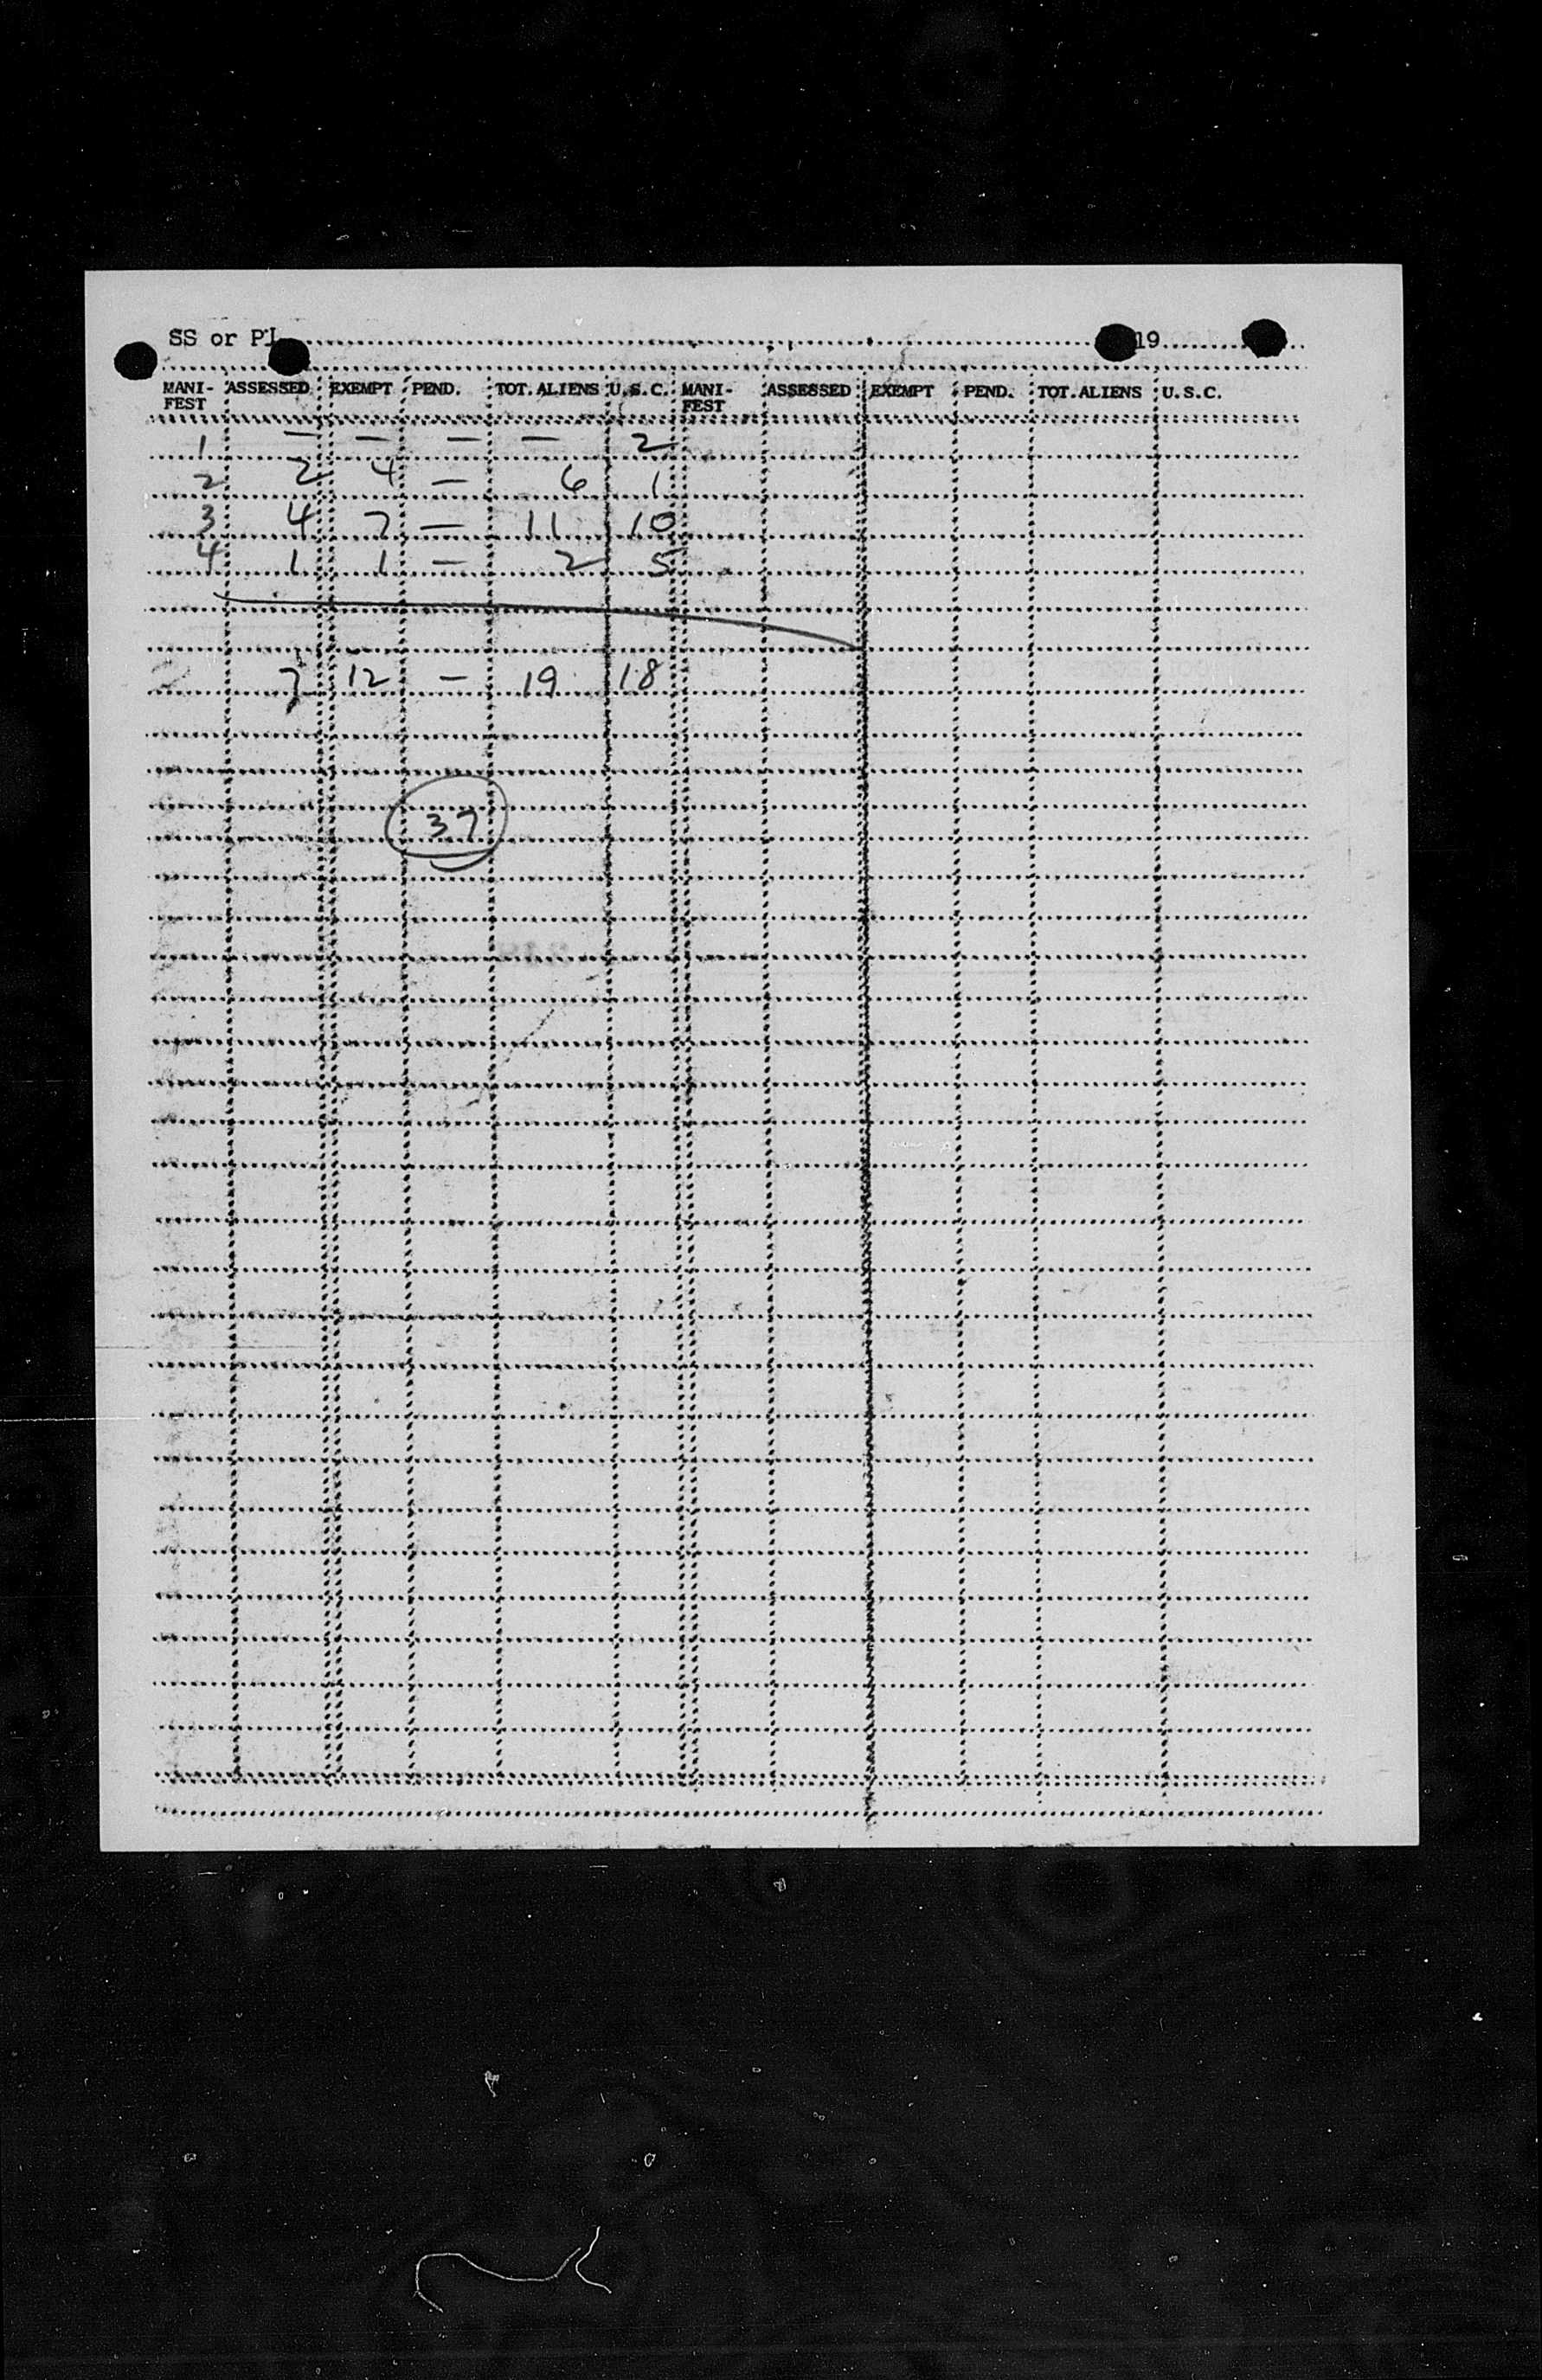 SS or Pl 19
MANI- ASSESSED EXEMPT PEND. TOT. ALIENS U.S.C. MANI- ASSESSED EXEMPT PEND. TOT. ALIENS U.S.C.
FEST FEST
1 — — — — 2
2 2 4 — 6 1
3 4 7 — 11 10
4 1 1 — 2 5
7 12 — 19 18
37